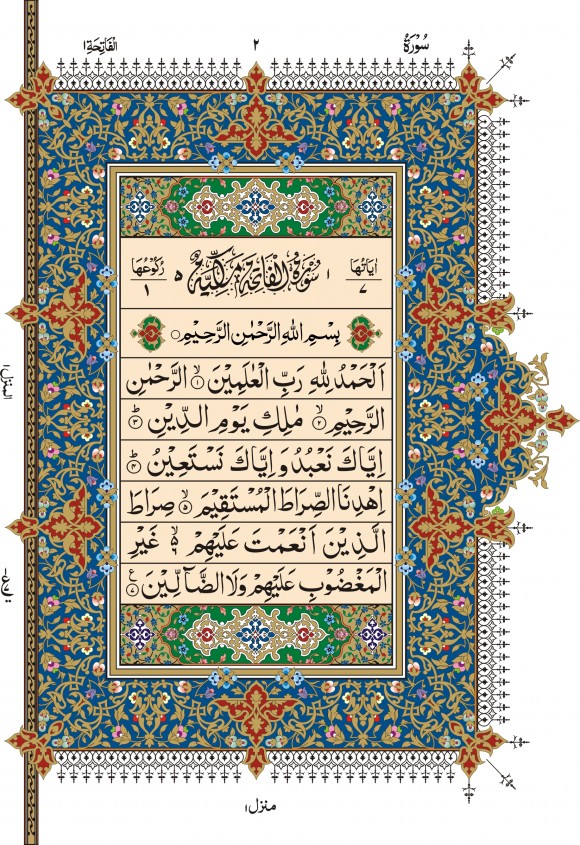 سُوْرَةُ ٢ الْفَاتِحَةِ ١
اٰيَاتُهَا ٧ ١ سُوْرَةُ الْفَاتِحَةِ مَكِّيَّةٌ ٥ رُكُوْعُهَا ١
بِسْمِ اللّٰهِ الرَّحْمٰنِ الرَّحِيْمِ
اَلْحَمْدُ لِلّٰهِ رَبِّ الْعٰلَمِيْنَ ۙ‏ ١ الرَّحْمٰنِ
الرَّحِيْمِ ۙ‏ ٢ مٰلِكِ يَوْمِ الدِّيْنِ ؕ‏ ٣
اِيَّاكَ نَعْبُدُ وَ اِيَّاكَ نَسْتَعِيْنُ ؕ‏ ٤
اِهْدِنَا الصِّرَاطَ الْمُسْتَقِيْمَ ۙ‏ ٥ صِرَاطَ
الَّذِيْنَ اَنْعَمْتَ عَلَيْهِمْ ۙ ٦ غَيْرِ
الْمَغْضُوْبِ عَلَيْهِمْ وَلَا الضَّآلِّيْنَ ٧ ع
المنزل ١
منزل ١